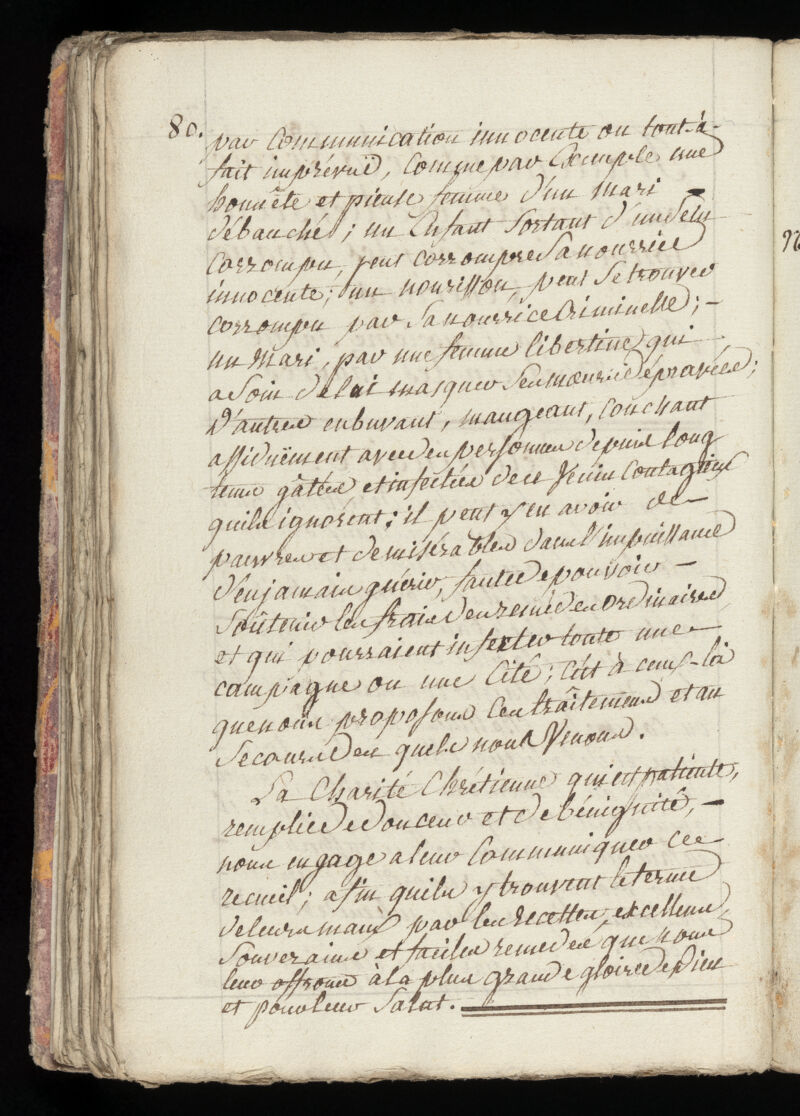 80.
par communication innocente ou tout-à-
fait imprévuë, comme par Exemple une
honnête et pieuse femme d'un Mari
débauché; un Enfant Sortant d'un Sein
Corrompu, peut corrompre Sa nourrice
innocente; un nourisson, peut Se trouver
corrompu par Sa nourrice Criminelle; -
un Mari, par une femme libertine qui
a Soin de lui masquer Ses mœurs dépravées;
D'autres en buvant, mangeant, couchant
assiduëment avec des personnes depuis long
tems gâtées et infectées de ce Venin Contagieux
qu'ils ignorent; il peut y en avoir de -
pauvres et de misérables dans l'impuissance
d'en jamais guérir, faute de pouvoir -
Soûtenir les frais des remèdes ordinaires,
et qui pourraient infecter toute une -
campagne ou une Cité; c'est à ceux-là
que nous proposons ces traîtemens et au
Secours des quels nous Venons.
La Charité Chrétienne qui est patiente,
remplie de douceur et de bénignité, -
nous engage a leur Communiquer ce
recueil; afin qu'ils y trouvent le terme
de leurs maux par les recettes excellens,
Souverains et faciles remedes que nous
leur offrons à la plus grande gloire de Dieu
et pour leur Salut.
92